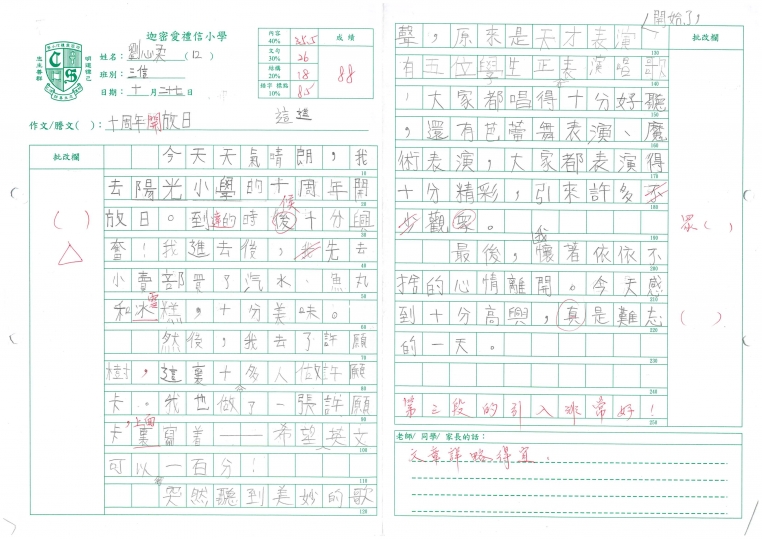 迦密愛禮信小學
姓名：劉心柔（12）
班別：三信
日期：十一月三十七日
內容 40% 35.5 成績
文句 30% 26
結構 20% 18 88
錯字 標點 10% 8.5
作文/謄文（ ）：十周年開放日
這進
批改欄
今天天氣晴朗，我
去陽光小學的十周年開
放日。到達的時候十分興
奮！我進去後，先去
小賣部買了汽水、魚丸
和冰雪糕，十分美味。
然後，我去了許願
樹，這裏十多人做許願
卡。我也做了一張許願
卡，上面寫着——希望英文
可以一百分！
突然聽到美妙的歌
10
20
30
40
50
60
70
80
90
100
110
120
批改欄
開始了，
聲，原來是天才表演
有五位學生正表演唱歌
，大家都唱得十分好聽
，還有芭蕾舞表演、魔
術表演，大家都表演得
十分精彩，引來許多
觀眾。
眾（ ）
最後，我懷著依依不
捨的心情離開。今天感
到十分高興，真是難忘
（ ）
的一天。
130
140
150
160
170
180
190
200
210
220
230
240
250
第三段的引入非常好！
老師/ 同學/ 家長的話：
文章詳略得宜。